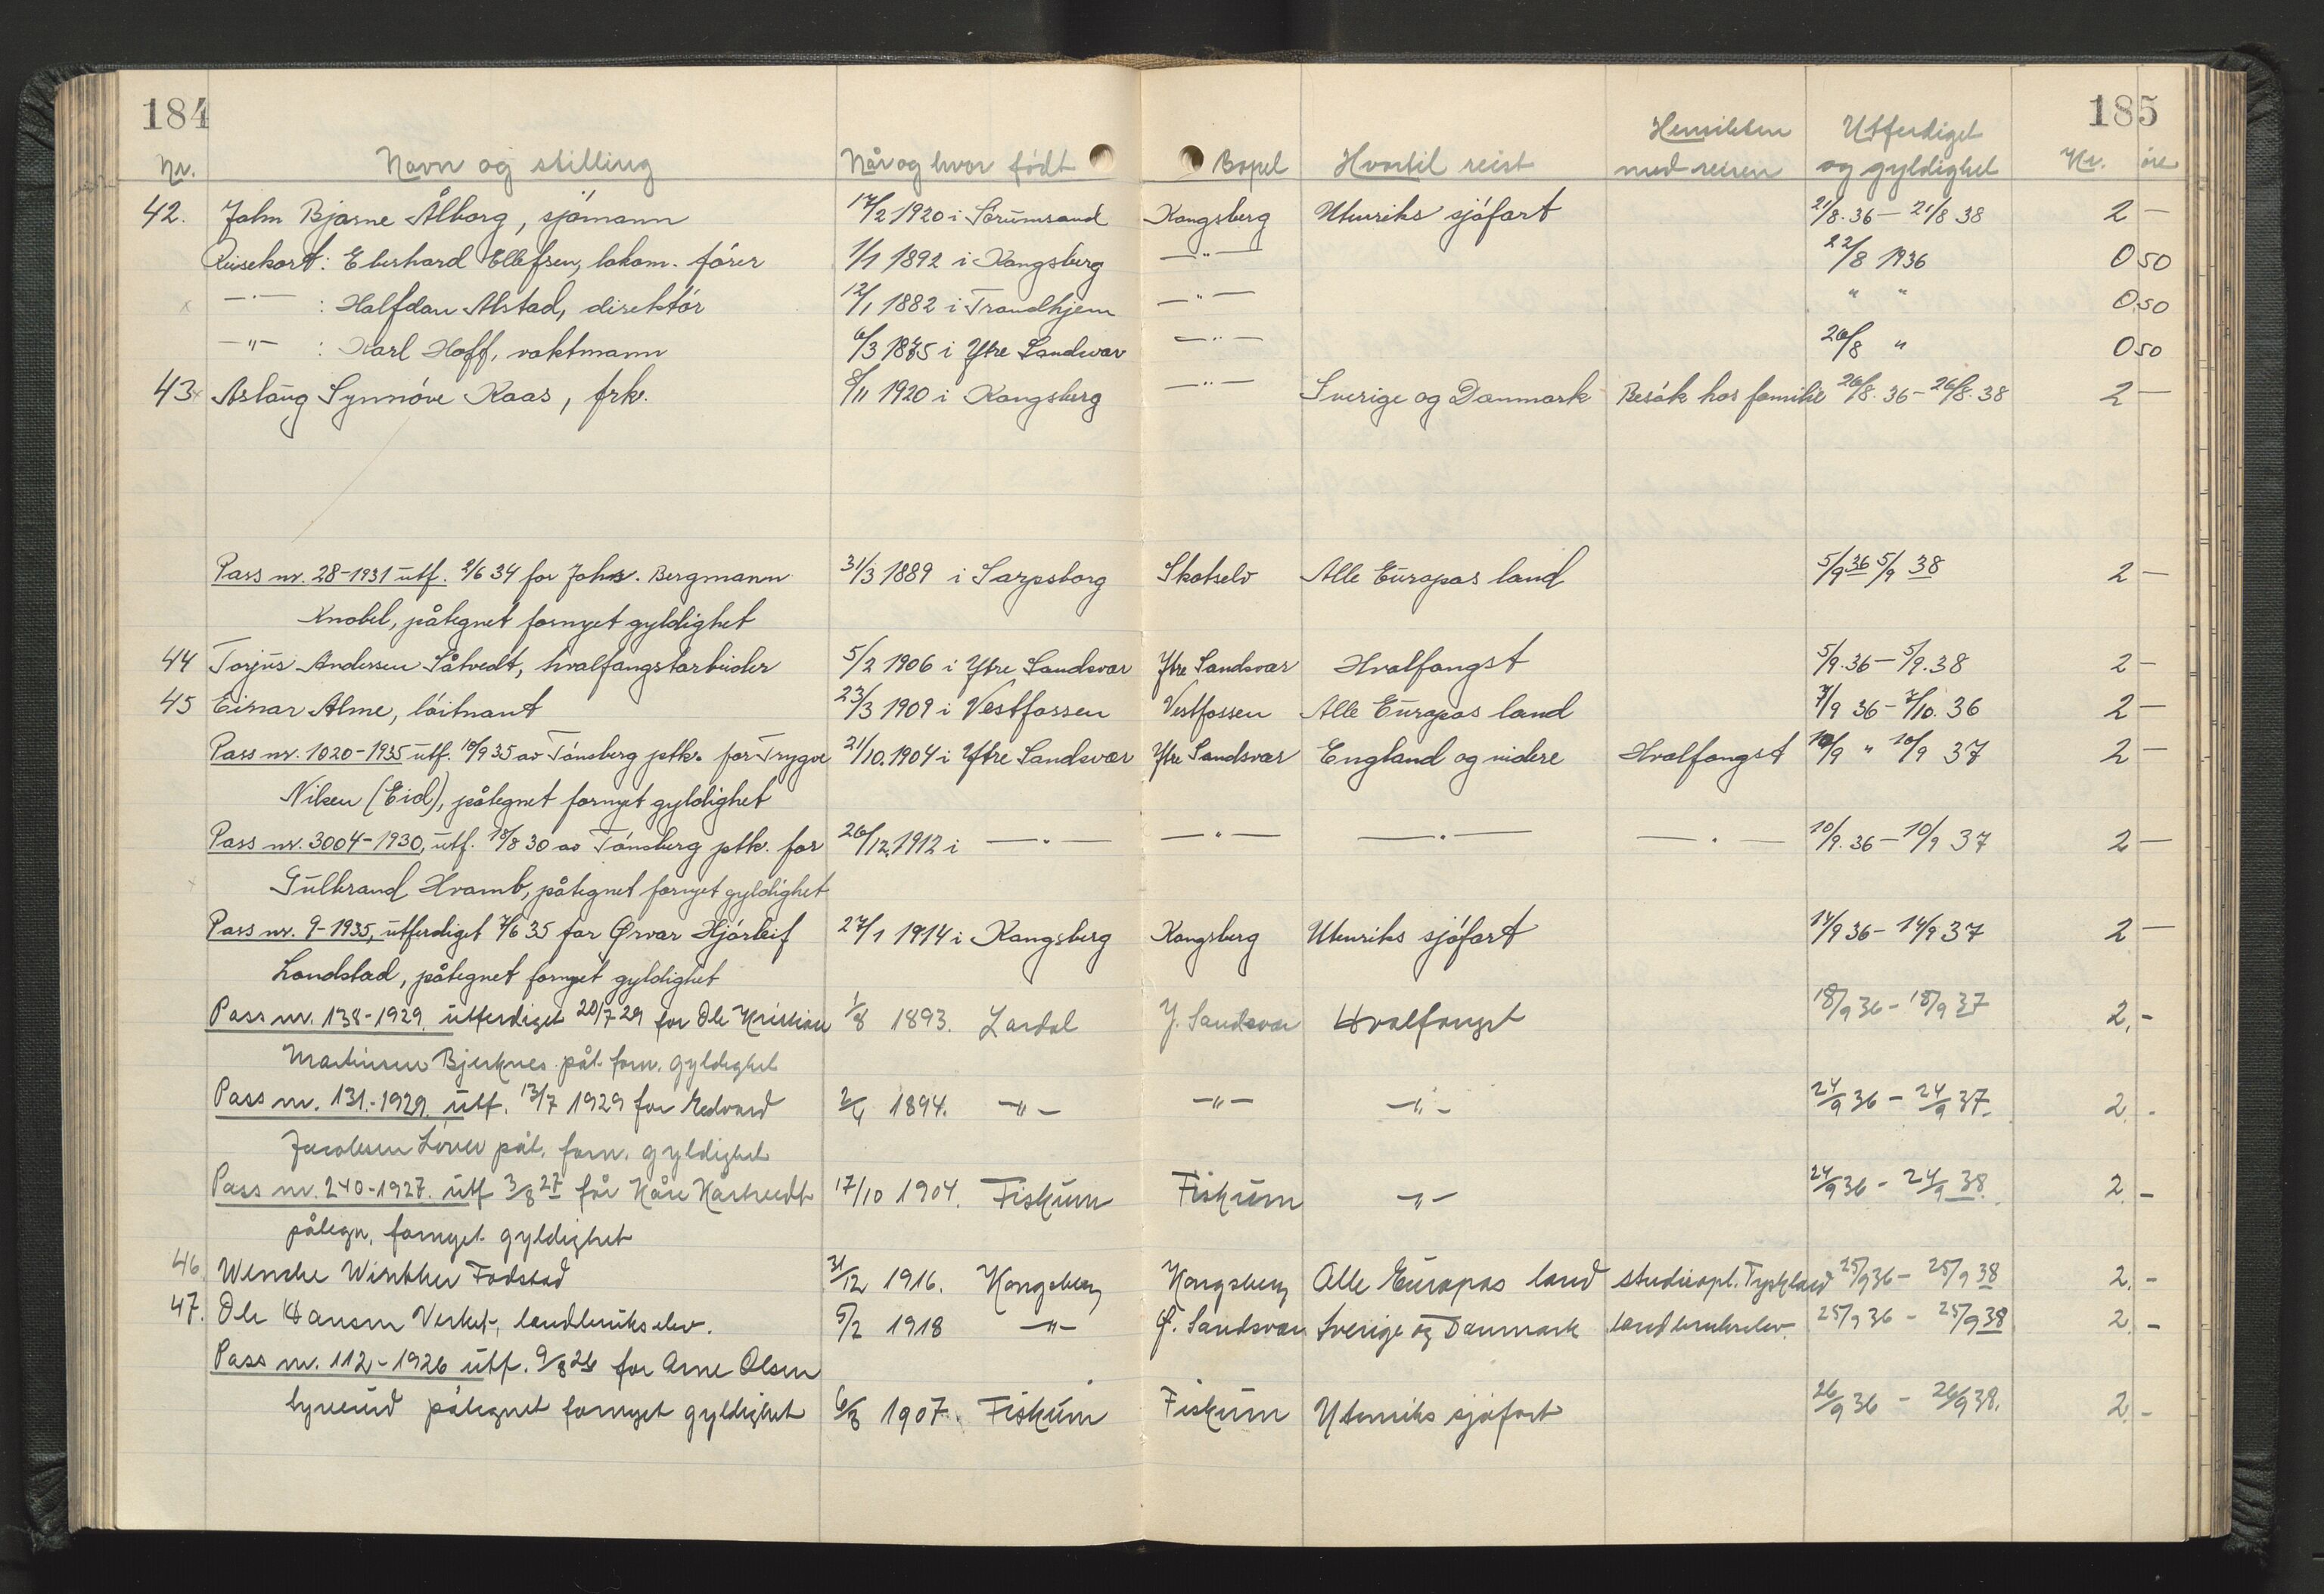 184
185
Nr. Navn og stilling Når og hvor født Bopel Hvortil reist Hensikten med reisen Utferdiget og gyldighet Kr. øre
42. John Bjarne Ålborg, sjömann 17/2 1920 i Sörumsand Kongsberg Utenriks sjöfart 21/8.36 – 21/8 38 2 —
Reisekort: Eberhard Ellefsen, lokom. förer 1/1 1892 i Kongsberg —"— 22/8 1936 0 50
—"— : Halfdan Alstad, direktör 12/1 1882 i Trondhjem —"— " " 0.50
—"— : Karl Hoff, vaktmann 6/3 1875 i Ytre Sandsvær —"— 26/8 " 0 50
43 Aslaug Synnöve Kaas, frk. 8/11 1920 i Kongsberg —"— Sverige og Danmark Besök hos familie 26/8.36 – 26/8.38 2 —
Pass nr. 28-1931 utf. 2/6 34 for Johs. Bergmann 31/3 1889 i Sarpsborg Skotselv Alle Europas land 5/9 36 5/9 38 2 —
Knobel, påtegnet fornyet gyldighet
44 Torjus Andersen Såtvedt, hvalfangstarbeider 5/2 1906 i Ytre Sandsvær Ytre Sandsvær Hvalfangst 5/9.36 – 5/9.38 2 —
45 Einar Alme, löitnant 23/3 1909 i Vestfossen Vestfossen Alle Europas land 7/9 36 – 7/10.36 2 —
Pass nr. 1020-1935 utf. 10/9 35 av Tönsberg ptk. for Trygve 21/10.1904 i Ytre Sandsvær Ytre Sandsvær England og videre Hvalfangst 10/9 " 10/9 37 2 —
Nilsen (Eid), påtegnet fornyet gyldighet
Pass nr. 3004-1930, utf. 18/8 30 av Tönsberg ptk. for 26/12.1912 i —"— —"— —"— —"— 10/9.36 – 10/9 37 2 —
Gulbrand Hvamb, påtegnet fornyet gyldighet
Pass nr. 9-1935, utferdiget 7/6 35 for Ørvar Hjörleif 27/1 1914 i Kongsberg Kongsberg Utenriks sjöfart 14/9 36 – 14/9 37 2 —
Landstad, påtegnet fornyet gyldighet
Pass nr. 138-1929. utferdiget 20/7 29 for Ole Kristian 1/8 1893. Lardal Y. Sandsvær Hvalfangst 18/9 36 – 18/9 37 2,-
Martinsen Bjerknes påt. forn. gyldighet
Pass nr. 131.-1929. utf. 13/7 1929 for Edvard 2/4 1894. —"— —"— —"— 24/9 36 – 24/9 37. 2. -
Jacobsen påt. forn. gyldighet
Pass nr. 240-1927. utf 3/8 27 for Kåre 17/10 1904. Fiskum Fiskum —"— 24/9 36 – 24/9 38. 2. -
påtegn. fornyet gyldighet
46. Wenche Winther Fodstad 31/12 1916. Kongsberg Kongsberg Alle Europas land studieopl. Tyskland 25/9 36 – 25/9 38 2. -
47. Ole Hansen Verket, landbrukselev. 5/2 1918 —"— Ø. Sandsvær Sverige og Danmark landbrukselev. 25/9 36 – 25/9 38 2. -
Pass nr. 112-1926 utf. 9/8 26 for Arne Olsen
påtegnet fornyet gyldighet 6/8 1907. Fiskum Fiskum Utenriks sjøfart 26/9 36 – 26/9 38. 2. -